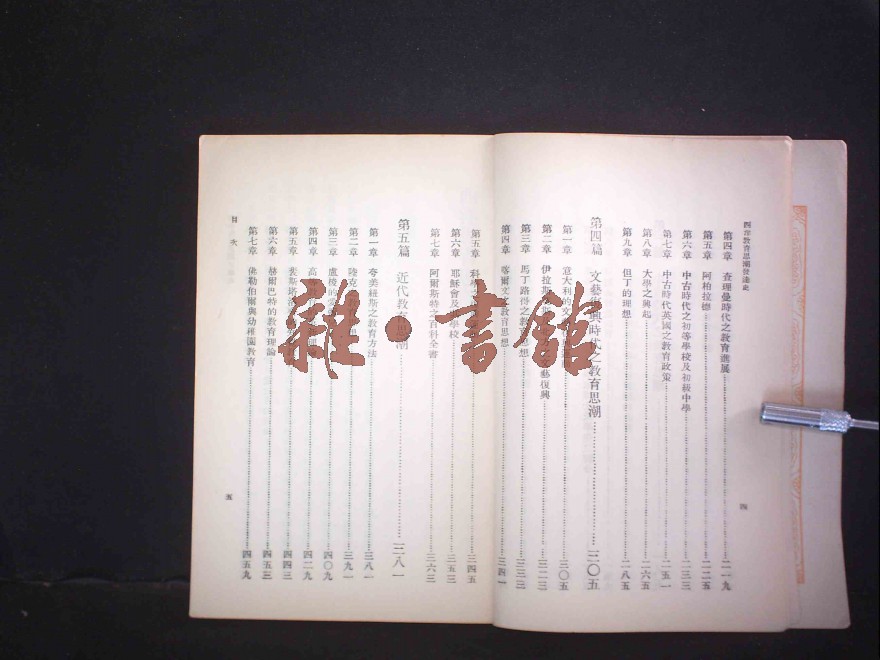 西洋教育思潮發達史
第四章 查理曼時代之教育進展 二一九
第五章 阿柏拉德 二二五
第六章 中古時代之初等學校及初級中學 二三三
第七章 中古時代英國之教育政策 二五一
第八章 大學之興起 二六五
第九章 但丁的理想 二八五
第四篇 文藝復興時代之教育思潮 三〇五
第一章 意大利的文 三〇五
第二章 伊拉斯 藝復興 三二三
第三章 馬丁路得之教 思想 三三三
第四章 喀爾文 教育思想 三四一
第五章 科學 三四五
第六章 耶穌會及 學校 三五三
第七章 阿爾斯特之百科全書 三六三
第五篇 近代教育思潮 三八一
第一章 夸美紐斯之教育方法 三八一
第二章 陸克 三九一
第三章 盧梭的 四〇九
第四章 四二九
第五章 裴斯塔 四四三
第六章 赫爾巴特的教育理論 四五三
第七章 佛勒伯爾與幼稚園教育 四五九
目次
四
五
雜·書館